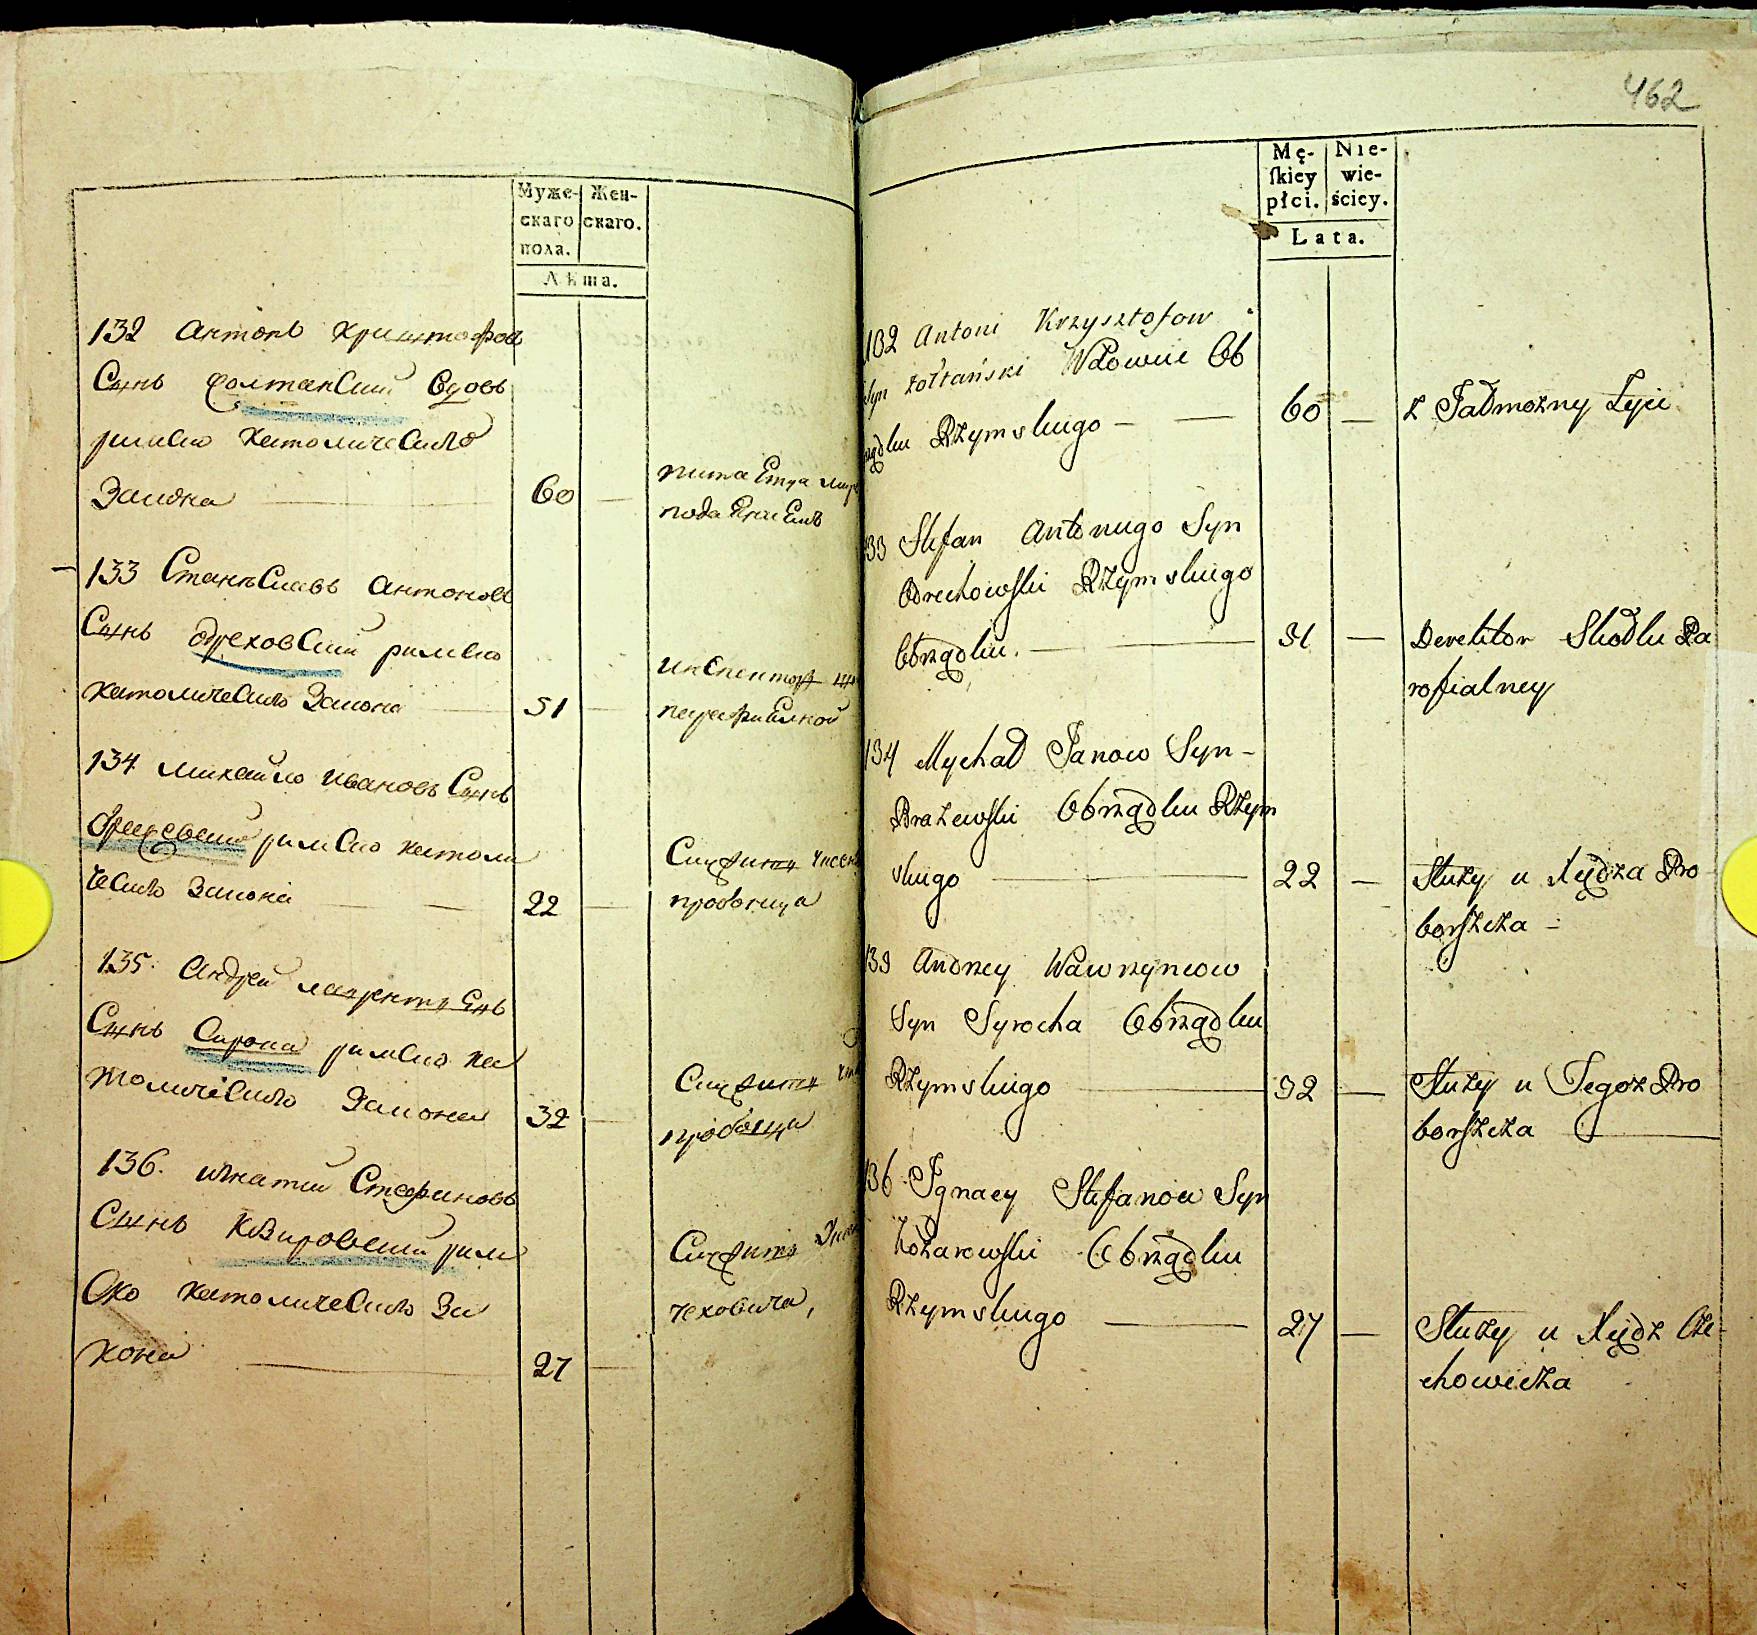 Муже- Жен-
скаго скаго.
пола.
Лѣта.
132 Антонъ Криштофов
Сынъ Солтанский Вдовъ
римско католическаго
Закона — 60 —
133 Станѣславъ Антоновъ
Сынъ Ореховский римско
католическаго Закона — 51 —
парафиялной
134 Михайло Ивановъ Сынъ
римско католи
ческаго Закона — 22 —
пробоща
135. Андрей Лаврентиевъ
Сынъ Сироха римско ка
толическаго Закона 32 —
пробоща
136. Игнатий Стефановъ
Сынъ рим
ско католическаго За
кона — 27 —
чеховича,
462
Mę- Nie-
skiey wie-
płci. ściey.
Lata.
132 Antoni Krzysztofow
Syn Żołtański Wdowiec Ob
rządku Rzymskiego — 60 — z Jałmożny Żyie
133 Stefan Antoniego Syn
Orechowski Rzymskiego
Obrządku. — 51 — Derektor Skodłu Pa
rofialney
134 Mychał Janow Syn —
Brażewski Obrządku Rzym
skiego — 22 — Służy u Xiędza Pro
borszcza —
135 Andrzey Wawrzyncow
Syn Syrocha Obrządku
Rzymskiego — 32 — Służy u Tegoż Pro
borszcza —
136 Ignacy Stefanow Syn
Obrządku
Rzymskiego — 27 — Służy u Xiędz Cze
chowicza